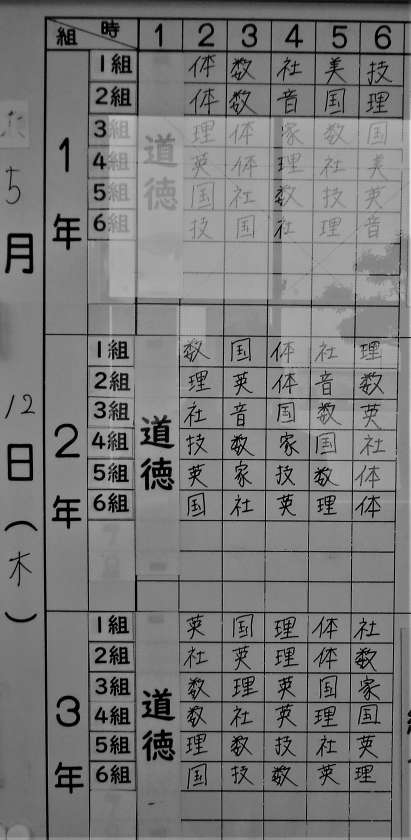 組 時 1 2 3 4 5 6
5月12日(木)
1年
道徳
1組 体 数 社 美 技
2組 体 数 音 国 理
3組 理 体 家 数 国
4組 英 体 理 社 美
5組 国 社 数 技 英
6組 技 国 社 理 音
2年
道徳
1組 数 国 体 社 理
2組 理 英 体 音 数
3組 社 音 国 数 英
4組 技 数 家 国 社
5組 英 家 技 数 体
6組 国 社 英 理 体
3年
道徳
1組 英 国 理 体 社
2組 社 英 理 体 数
3組 数 理 英 国 家
4組 数 社 英 理 国
5組 理 数 技 社 英
6組 国 技 数 英 理